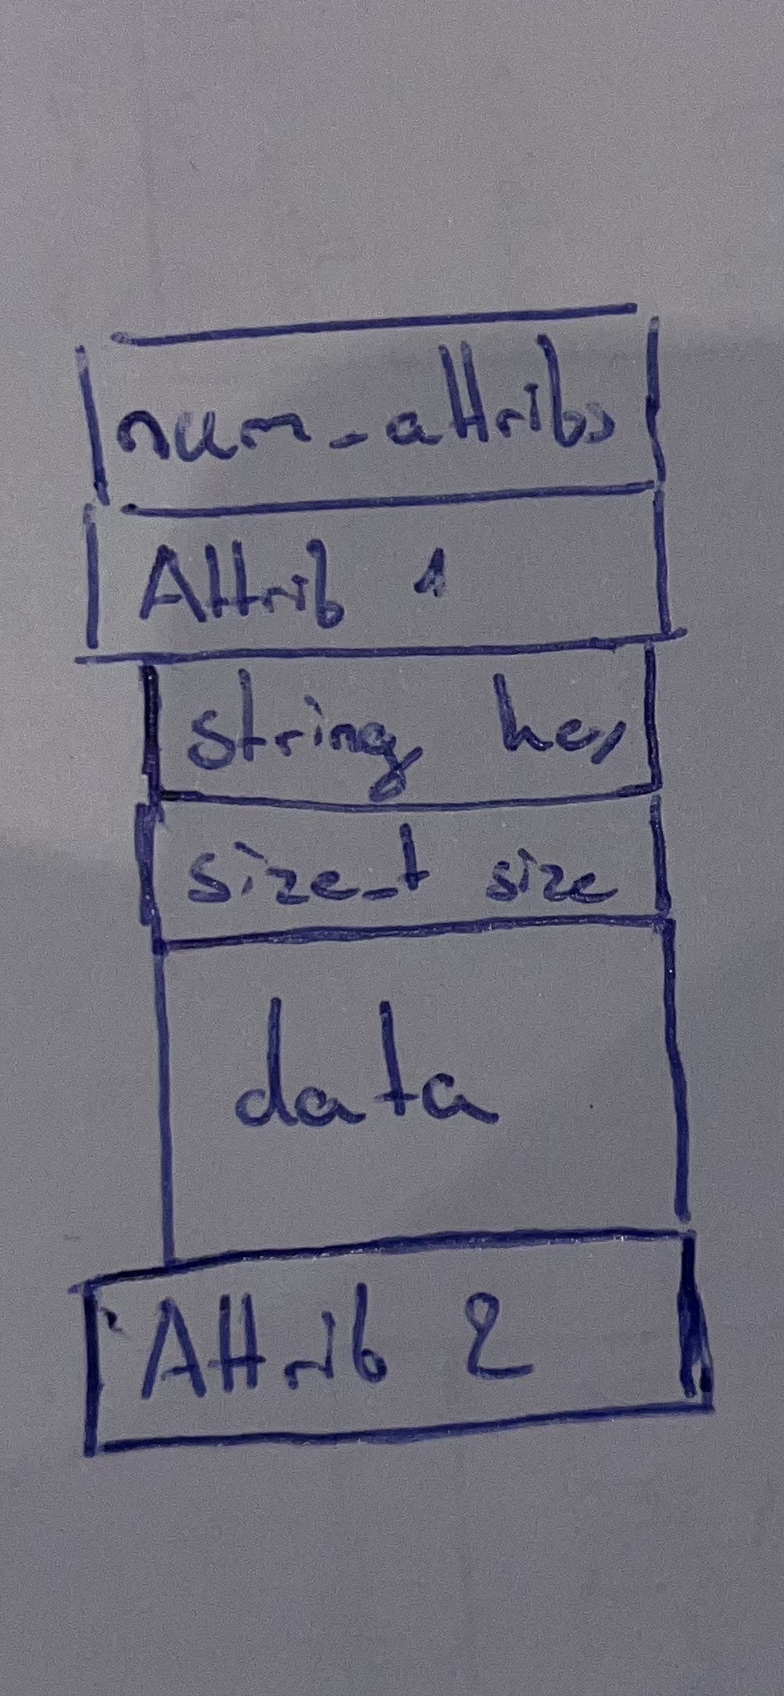 num_attribs
Attrib 1
string key
size_t size
data
Attrib 2